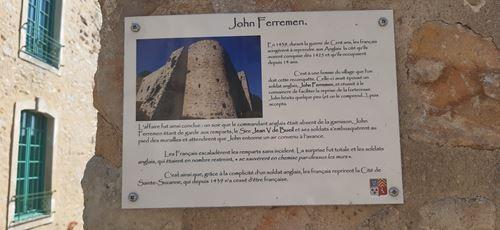 John Ferremen.
En 1439, durant la guerre de Cent ans, les français
songèrent à reprendre aux Anglais la cité qu'ils
avaient conquise dès 1425 et qu'ils occupaient
depuis 14 ans.
C'est à une femme du village que l'on
doit cette reconquête. Celle-ci avait épousé un
soldat anglais, John Ferremen, et réussit à le
convaincre de faciliter la reprise de la forteresse.
John hésita quelque peu (et on le comprend...), puis
accepta.
L'affaire fut ainsi conclue : un soir que le commandant anglais était absent de la garnison, John
Ferremen étant de garde aux remparts, le Sire Jean V de Bueil et ses soldats s'embusquèrent au
pied des murailles et attendirent que John entonne un air convenu à l'avance.
Les Français escaladèrent les remparts sans incident. La surprise fut totale et les soldats
anglais, qui étaient en nombre restreint, « se sauvèrent en chemise par-dessus les murs ».
C'est ainsi que, grâce à la complicité d'un soldat anglais, les français reprirent la Cité de
Sainte-Suzanne, qui depuis 1439 n'a cessé d'être française.